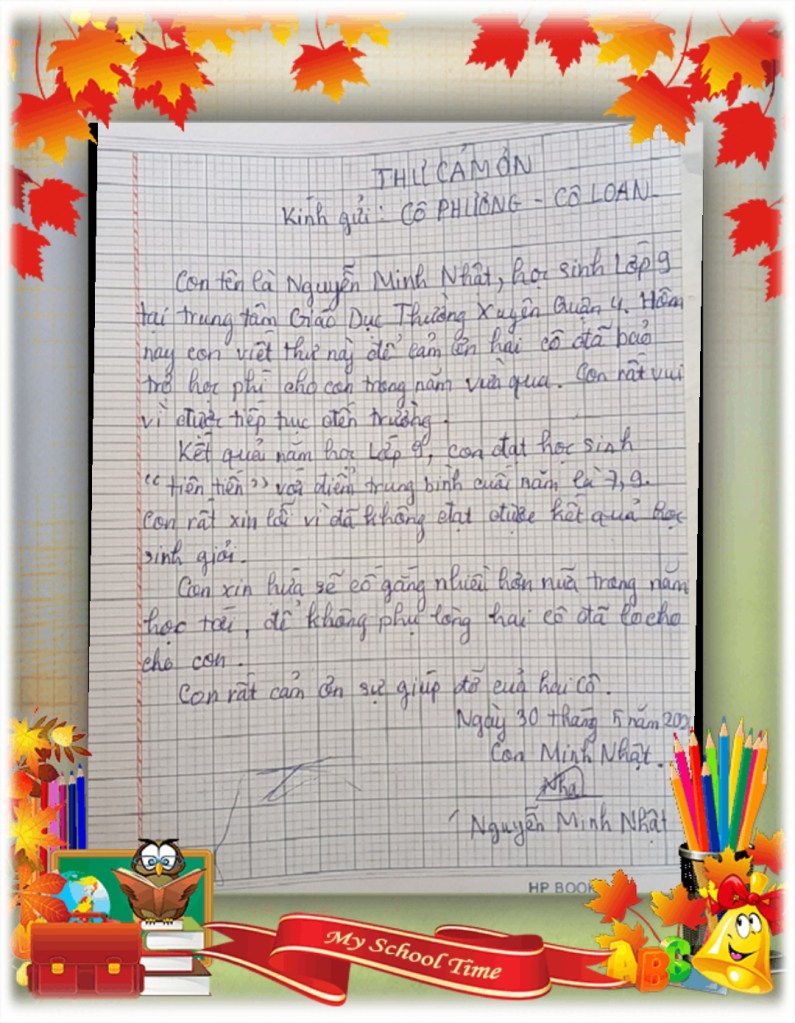 THƯ CẢM ƠN
Kính gửi: CÔ PHƯƠNG - CÔ LOAN
Con tên là Nguyễn Minh Nhật, học sinh Lớp 9
tại trung tâm Giáo Dục Thường Xuyên Quận 4. Hôm
nay con viết thư này để cảm ơn hai cô đã bảo
trợ học phí cho con trong năm vừa qua. Con rất vui
vì được tiếp tục đến trường.
Kết quả năm học Lớp 9, con đạt học sinh
"tiên tiến" với điểm trung bình cuối năm là 7,9.
Con rất xin lỗi vì đã không đạt được kết quả học
sinh giỏi.
Con xin hứa sẽ cố gắng nhiều hơn nữa trong năm
học tới, để không phụ lòng hai cô đã lo cho
cho con.
Con rất cảm ơn sự giúp đỡ của hai cô.
Ngày 30 tháng 5 năm
Con Minh Nhật.
Nha
Nguyễn Minh Nhật
HP BOOK
My School Time
ABC